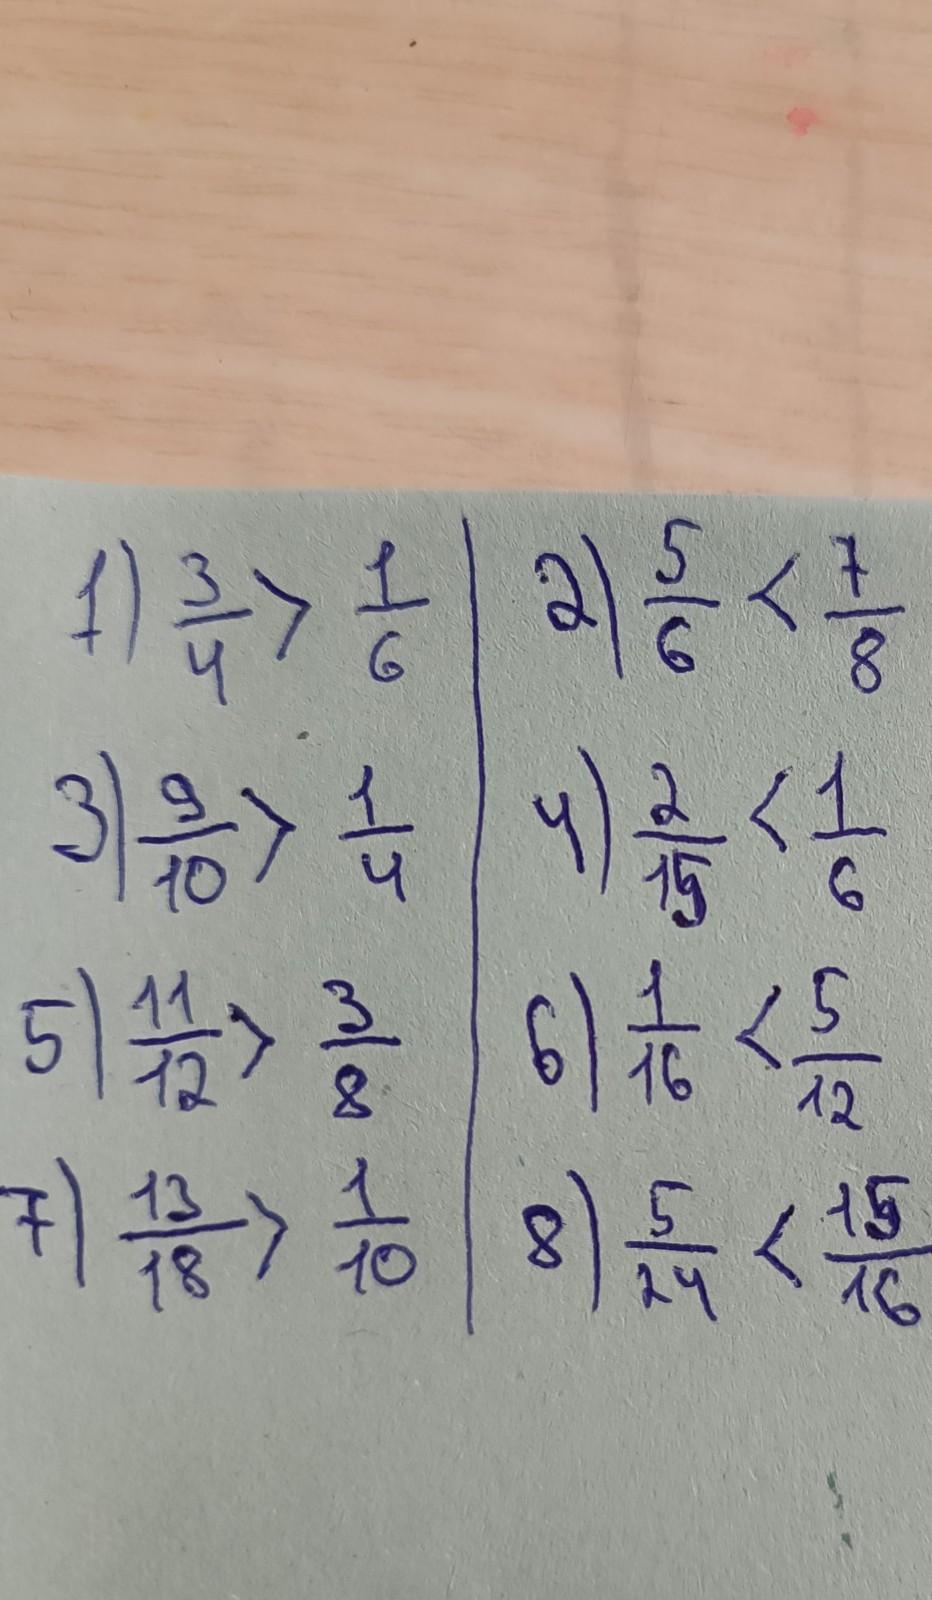 1) 3/4 > 1/6
2) 5/6 < 7/8
3) 9/10 > 1/4
4) 2/15 < 1/6
5) 11/12 > 3/8
6) 1/16 < 5/12
7) 13/18 > 1/10
8) 5/24 < 15/16